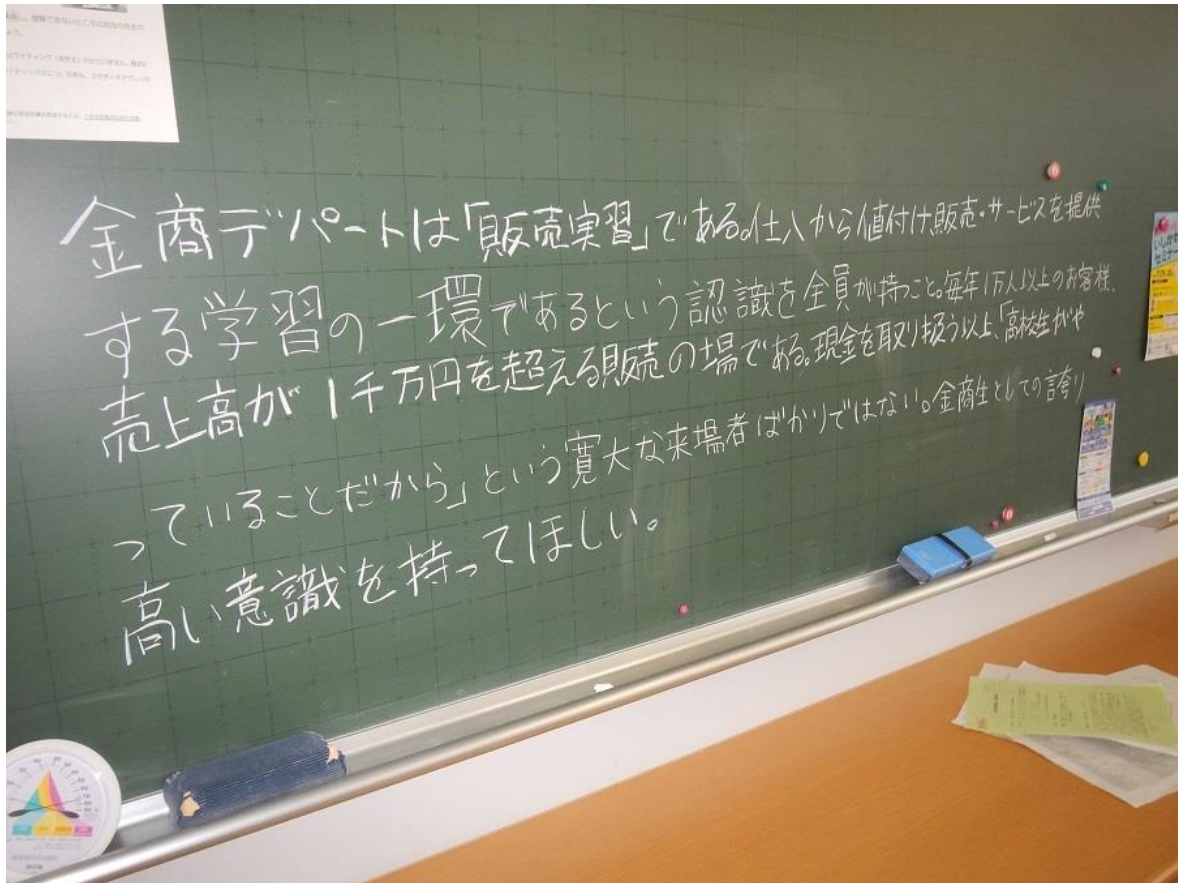 金商デパートは「販売実習」である。仕入から値付け、販売・サービスを提供
する学習の一環であるという認識を全員が持つこと。毎年1万人以上のお客様、
売上高が1千万円を超える販売の場である。現金を取り扱う以上、「高校生がや
っていることだから」という寛大な来場者ばかりではない。金商生としての誇り
高い意識を持ってほしい。
いしかわ
セミナー